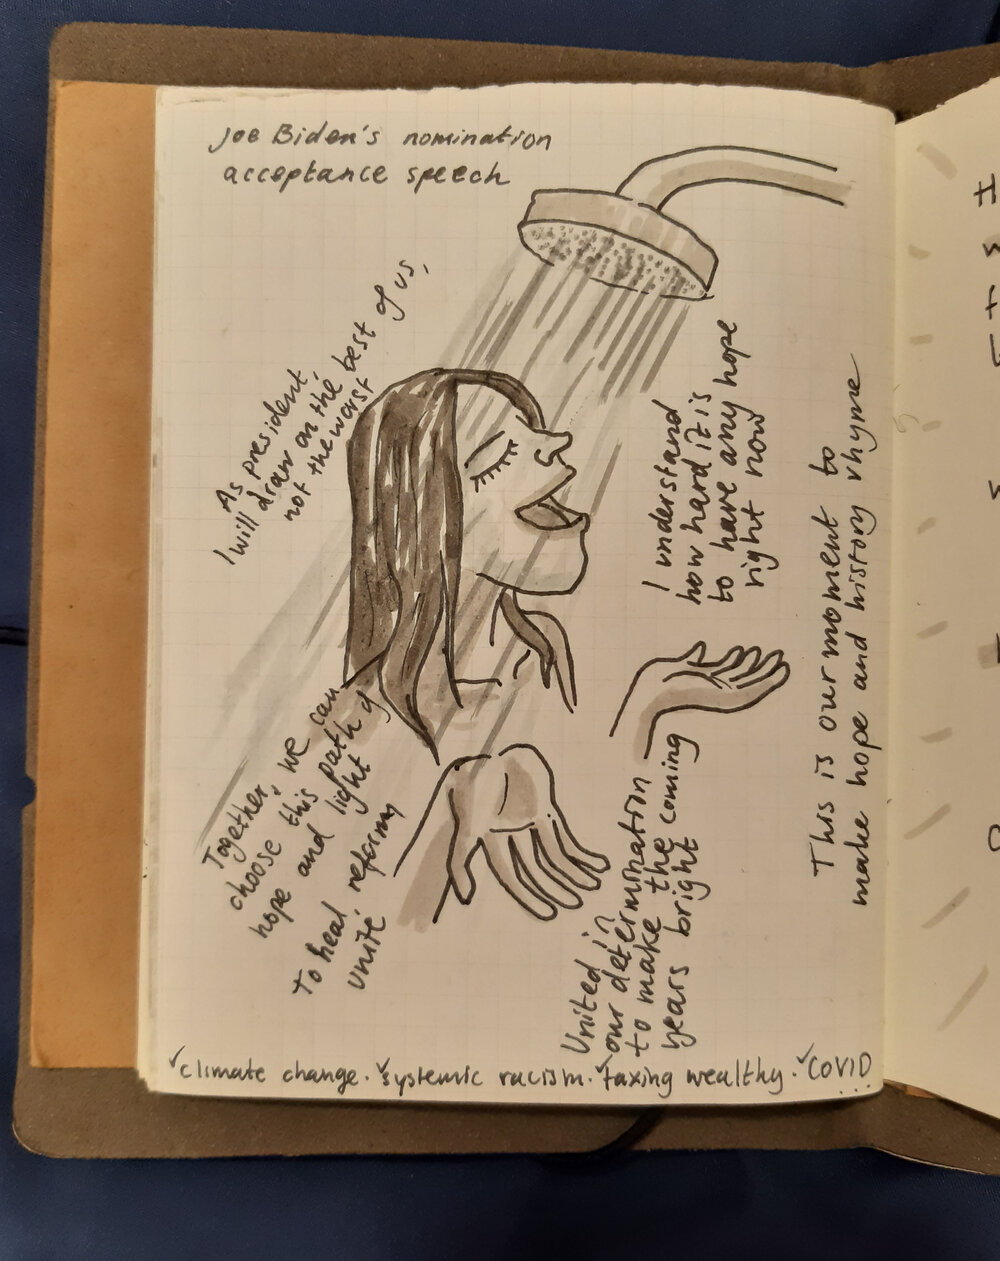 Joe Biden's nomination
acceptance speech
As president,
I will draw on the best of us,
not the worst
I understand
how hard it is
to have any hope
right now
This is our moment to
make hope and history rhyme
Together, we can
choose this path of
hope and light
To heal, reform,
unite
United in
our determination
to make the coming
years bright
✓climate change. ✓systemic racism. ✓taxing wealthy. ✓COVID